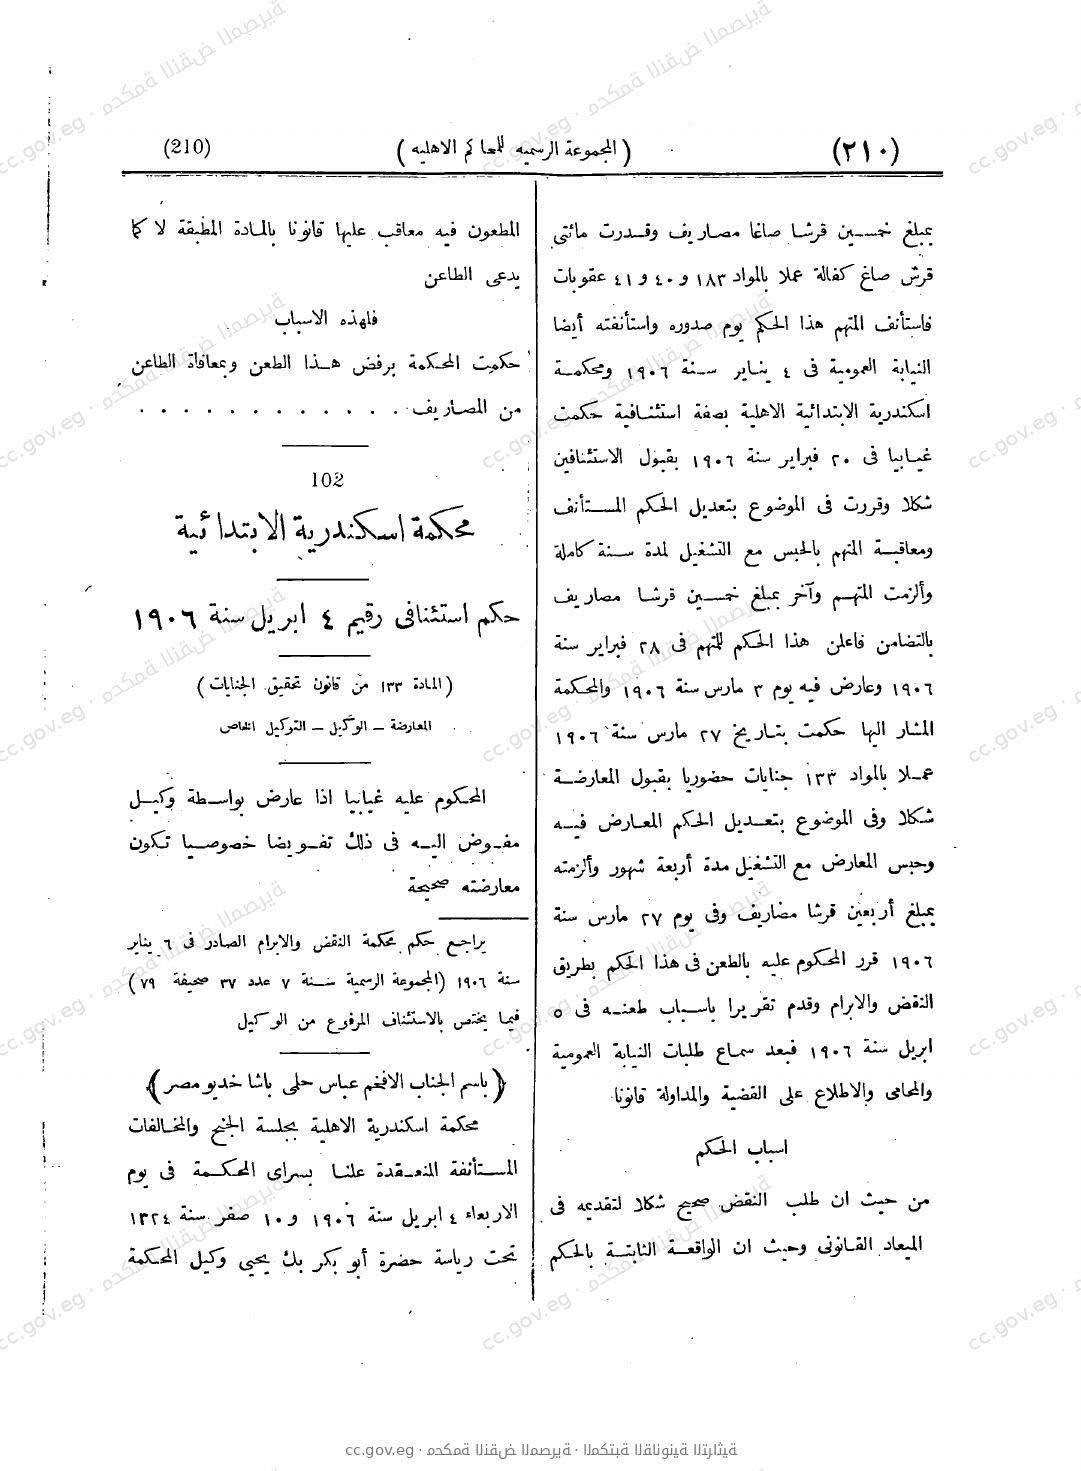 (٢١٠)
(المجموعة الرسميه للمحاكم الاهليه)
(210)
بمبلغ خمسين قرشا صاغا مصاريف وقدرت مائتى
قرش صاغ كفالة عملا بالمواد ١٨٣ و ٤٠ و ٤١ عقوبات
فاستأنف المتهم هذا الحكم يوم صدوره واستأنفته أيضا
النيابة العمومية فى ٤ يناير سنة ١٩٠٦ ومحكمة
اسكندرية الابتدائية الاهلية بصفة استئنافية حكمت
غيابيا فى ٢٠ فبراير سنة ١٩٠٦ بقبول الاستئنافين
شكلا وقررت فى الموضوع بتعديل الحكم المستأنف
ومعاقبة المتهم بالحبس مع التشغيل لمدة سنة كاملة
وألزمت المتهم وآخر بمبلغ خمسين قرشا مصاريف
بالتضامن فاعلن هذا الحكم للمتهم فى ٢٨ فبراير سنة
١٩٠٦ وعارض فيه يوم ٣ مارس سنة ١٩٠٦ والمحكمة
المشار اليها حكمت بتاريخ ٢٧ مارس سنة ١٩٠٦
عملا بالمواد ١٣٣ جنايات حضوريا بقبول المعارضة
شكلا وفى الموضوع بتعديل الحكم المعارض فيه
وحبس المعارض مع التشغيل مدة أربعة شهور وألزمته
بمبلغ أربعين قرشا مصاريف وفى يوم ٢٧ مارس سنة
١٩٠٦ قرر المحكوم عليه بالطعن فى هذا الحكم بطريق
النقض والابرام وقدم تقريرا باسباب طعنه فى ٥
ابريل سنة ١٩٠٦ فبعد سماع طلبات النيابة العمومية
والمحامى والاطلاع على القضية والمداولة قانونا
اسباب الحكم
من حيث ان طلب النقض صحيح شكلا لتقديمه فى
الميعاد القانونى وحيث ان الواقعة الثابتة بالحكم
المطعون فيه معاقب عليها قانونا بالمادة المطبقة لا كما
يدعى الطاعن
فلهذه الاسباب
حكمت المحكمة برفض هذا الطعن وبمعافاة الطاعن
من المصاريف . . . . . . . . . . . . .
102
محكمة اسكندرية الابتدائية
حكم استئنافى رقيم ٤ ابريل سنة ١٩٠٦
(المادة ١٣٣ من قانون تحقيق الجنايات)
المعارضة – الوكيل – التوكيل الخاص
المحكوم عليه غيابيا اذا عارض بواسطة وكيل
مفوض اليه فى ذلك تفويضا خصوصيا تكون
معارضته صحيحة
يراجع حكم محكمة النقض والابرام الصادر فى ٦ يناير
سنة ١٩٠٦ (المجموعة الرسمية سنة ٧ عدد ٣٧ صحيفة ٧٩)
فيما يختص بالاستئناف المرفوع من الوكيل
(باسم الجناب الافخم عباس حلمى باشا خديو مصر)
محكمة اسكندرية الاهلية بجلسة الجنح والمخالفات
المستأنفة المنعقدة علنا بسراى المحكمة فى يوم
الاربعاء ٤ ابريل سنة ١٩٠٦ و ١٠ صفر سنة ١٣٢٤
تحت رياسة حضرة أبو بكر بك يحيى وكيل المحكمة
cc.gov.eg · محكمة النقض المصرية · المكتبة القانونية التراثية